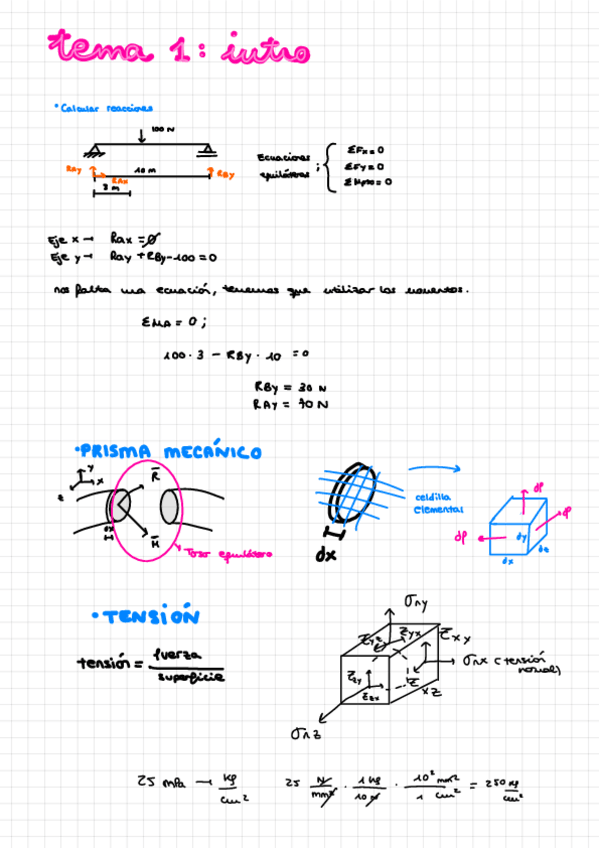 tema 1: intro
• Calcular reacciones
100 N
RAy
RAx
10 m
RBy
3 m
Ecuaciones equilibrio ;
ΣFx=0
ΣFy=0
Eje x → Rax = 0
Eje y → Ray + RBy - 100 = 0
nos falta una ecuación, tenemos que utilizar los momentos.
ΣMA = 0 ;
100 · 3 - RBy · 10 = 0
RBy = 30 N
RAy = 70 N
• PRISMA MECÁNICO
y
x
z
R
M
dx
Trozo equilibrio
dx
celdilla
elemental
dp
dp
dp
dy
dz
dx
• TENSIÓN
tensión = fuerza
superficie
σny
τyz
τyx
τxy
σnx (tensión
normal)
τxz
τzy
τzx
σnz
25 mPa → kg/cm²
25 N/mm² · 1 kg/10 N · 10² mm²/1 cm² = 250 kg/cm²